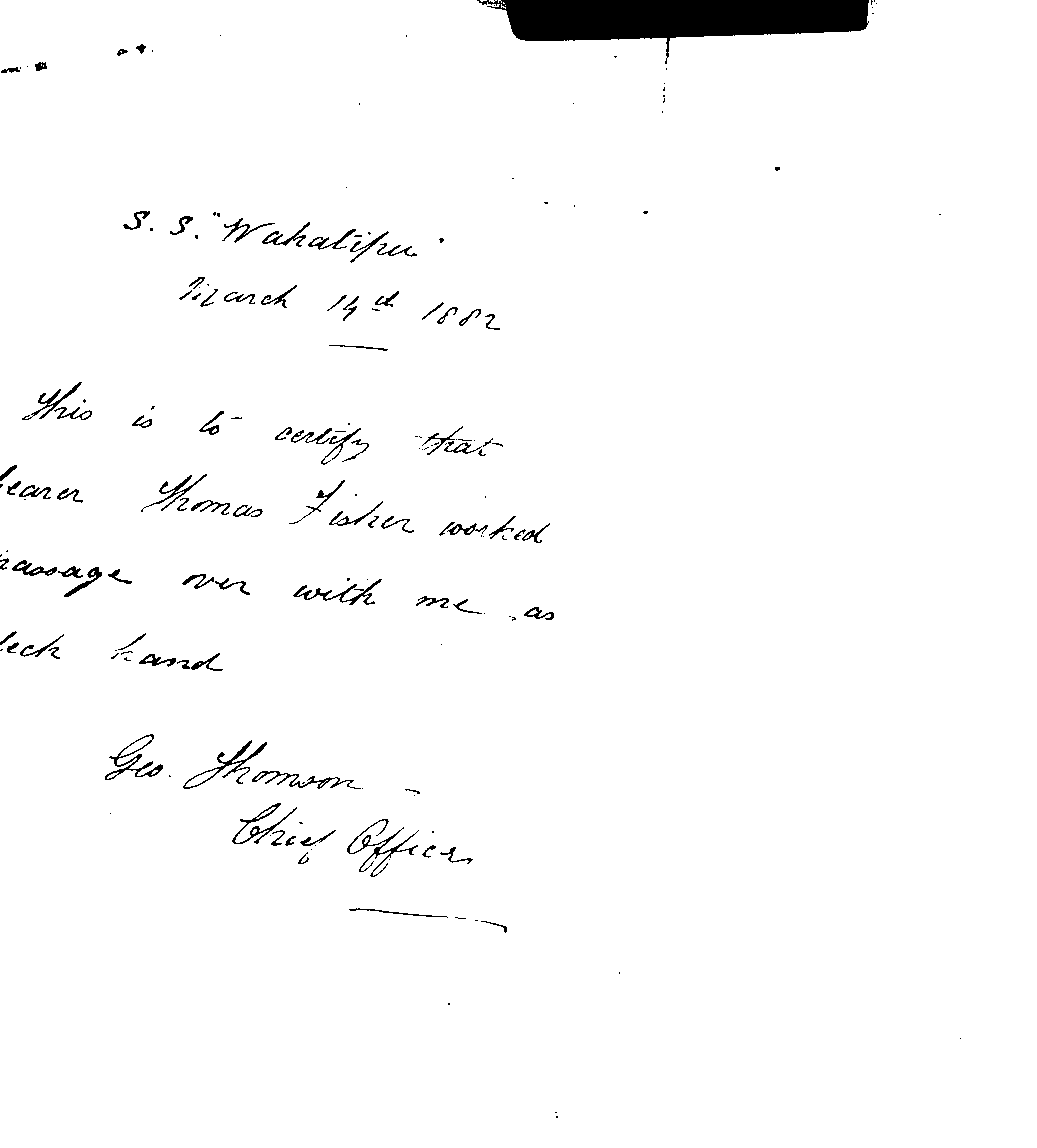 S. S. "Wahatipu"
March 14th 1882
This is to certify that
bearer Thomas Fisher worked
passage over with me as
deck hand
Geo. Thomson -
Chief Officer